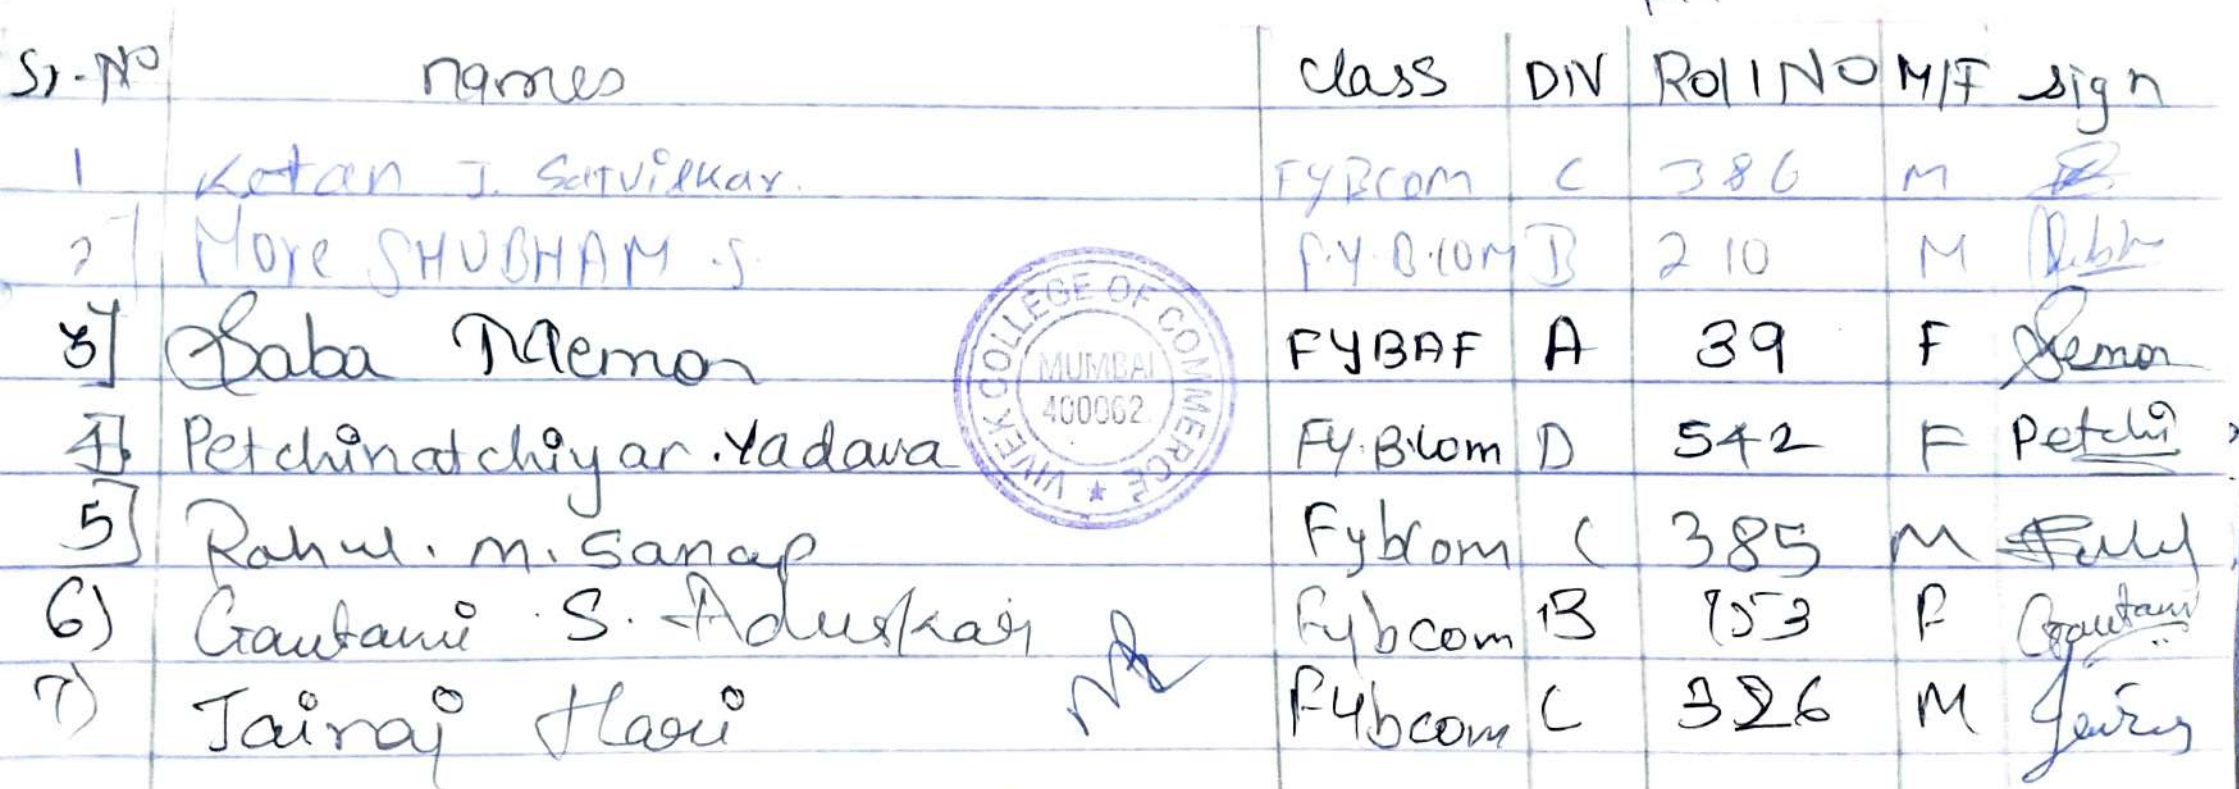 Sr.No names Class DIV Roll NO M/F sign
1 Ketan J. Satvilkar. FYBCom C 386 M
2] More SHUBHAM .S. F.Y.B.COM B 210 M
3] Saba Memon FYBAF A 39 F Semon
4]. Petchinatchiyar.Yadava FY.B.Com D 542 F Petchi
5] Rahul. M. Sanap Fybcom C 385 M
6) Gautami S. Aduskar Fybcom B 153 F Gautami
7) Jairaj Hari FYbcom C 326 M Jairaj
VIVEK COLLEGE OF COMMERCE ★
MUMBAI
400062.